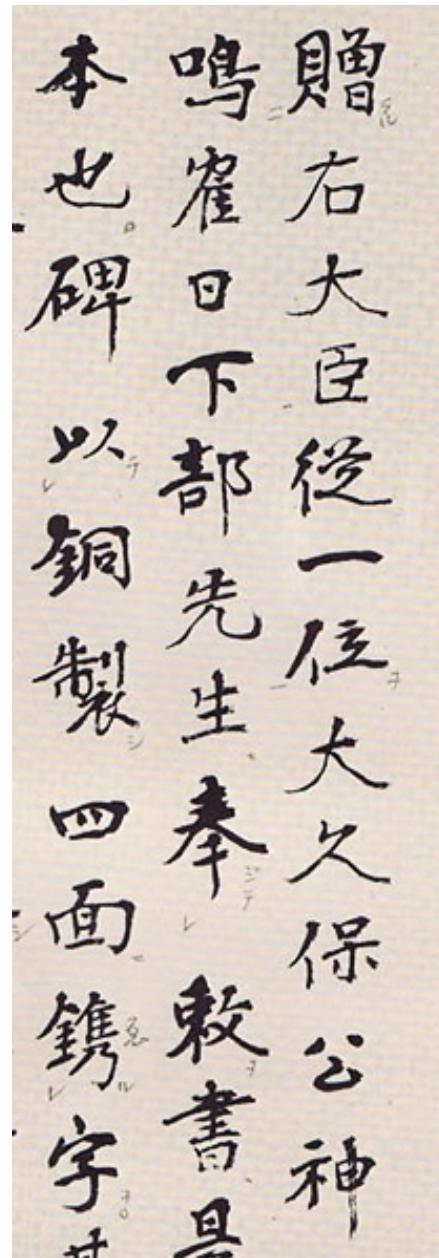 贈右大臣從一位大久保公神
鳴寉日下部先生奉 敕書
本也碑 以銅製四面鐫字